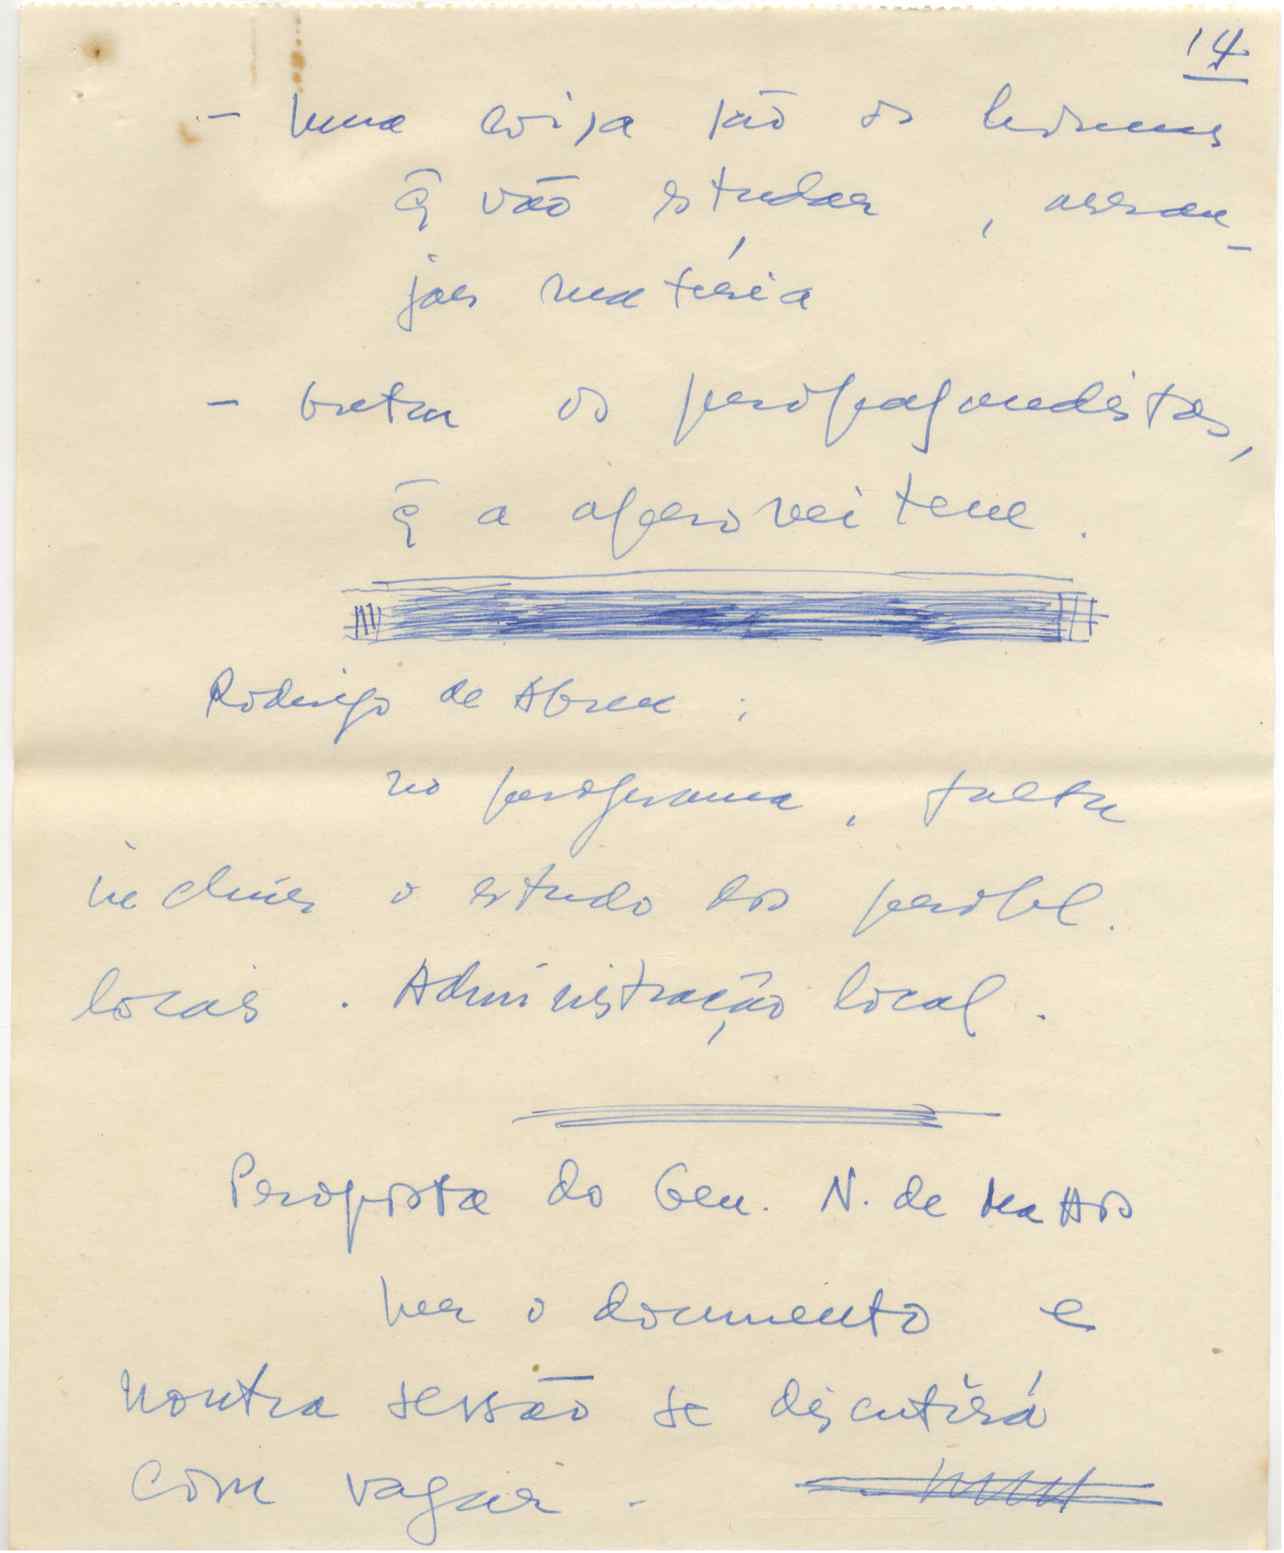 14
- Uma coisa são os homens
q̃ vão estudar, arran-
jar matéria
- outra os propagandistas,
q̃ a aproveitem.
Rodrigo de Abreu:
no programa, falta
incluir o estudo dos probl.
locais. Administração local.
Proposta do Gen. N. de Mattos
Ler o documento e
noutra sessão se discutirá
com vagar.